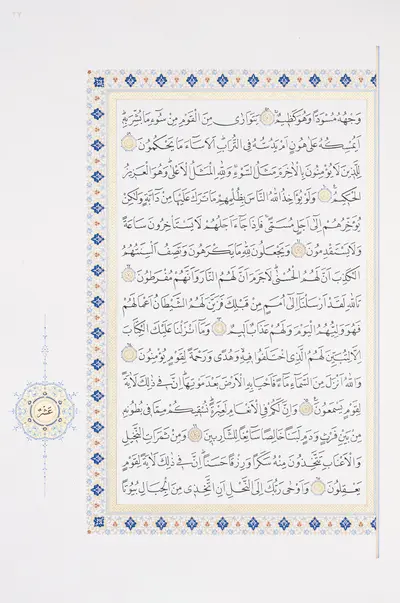 وَجْهُهُ مُسْوَدًّا وَهُوَ كَظِيمٌ يَتَوَارَى مِنَ الْقَوْمِ مِنْ سُوءِ مَا بُشِّرَ بِهِ
اَيُمْسِكُهُ عَلَى هُونٍ اَمْ يَدُسُّهُ فِي التُّرَابِ اَلَا سَاءَ مَا يَحْكُمُونَ
لِلَّذِينَ لَا يُؤْمِنُونَ بِالْاٰخِرَةِ مَثَلُ السَّوْءِ وَلِلّٰهِ الْمَثَلُ الْاَعْلَى وَهُوَ الْعَزِيزُ
الْحَكِيمُ وَلَوْ يُؤَاخِذُ اللّٰهُ النَّاسَ بِظُلْمِهِمْ مَا تَرَكَ عَلَيْهَا مِنْ دَابَّةٍ وَلٰكِنْ
يُؤَخِّرُهُمْ اِلَى اَجَلٍ مُسَمًّى فَاِذَا جَاءَ اَجَلُهُمْ لَا يَسْتَأْخِرُونَ سَاعَةً
وَلَا يَسْتَقْدِمُونَ وَيَجْعَلُونَ لِلّٰهِ مَا يَكْرَهُونَ وَتَصِفُ اَلْسِنَتُهُمُ
الْكَذِبَ اَنَّ لَهُمُ الْحُسْنَى لَا جَرَمَ اَنَّ لَهُمُ النَّارَ وَاَنَّهُمْ مُفْرَطُونَ
تَاللّٰهِ لَقَدْ اَرْسَلْنَا اِلَى اُمَمٍ مِنْ قَبْلِكَ فَزَيَّنَ لَهُمُ الشَّيْطَانُ اَعْمَالَهُمْ
فَهُوَ وَلِيُّهُمُ الْيَوْمَ وَلَهُمْ عَذَابٌ اَلِيمٌ وَمَا اَنْزَلْنَا عَلَيْكَ الْكِتَابَ
اِلَّا لِتُبَيِّنَ لَهُمُ الَّذِي اخْتَلَفُوا فِيهِ وَهُدًى وَرَحْمَةً لِقَوْمٍ يُؤْمِنُونَ
وَاللّٰهُ اَنْزَلَ مِنَ السَّمَاءِ مَاءً فَاَحْيَا بِهِ الْاَرْضَ بَعْدَ مَوْتِهَا اِنَّ فِي ذٰلِكَ لَاٰيَةً
لِقَوْمٍ يَسْمَعُونَ وَاِنَّ لَكُمْ فِي الْاَنْعَامِ لَعِبْرَةً نُسْقِيكُمْ مِمَّا فِي بُطُونِهِ
مِنْ بَيْنِ فَرْثٍ وَدَمٍ لَبَنًا خَالِصًا سَائِغًا لِلشَّارِبِينَ وَمِنْ ثَمَرَاتِ النَّخِيلِ
وَالْاَعْنَابِ تَتَّخِذُونَ مِنْهُ سَكَرًا وَرِزْقًا حَسَنًا اِنَّ فِي ذٰلِكَ لَاٰيَةً لِقَوْمٍ
يَعْقِلُونَ وَاَوْحَى رَبُّكَ اِلَى النَّحْلِ اَنِ اتَّخِذِي مِنَ الْجِبَالِ بُيُوتًا
عَشْر